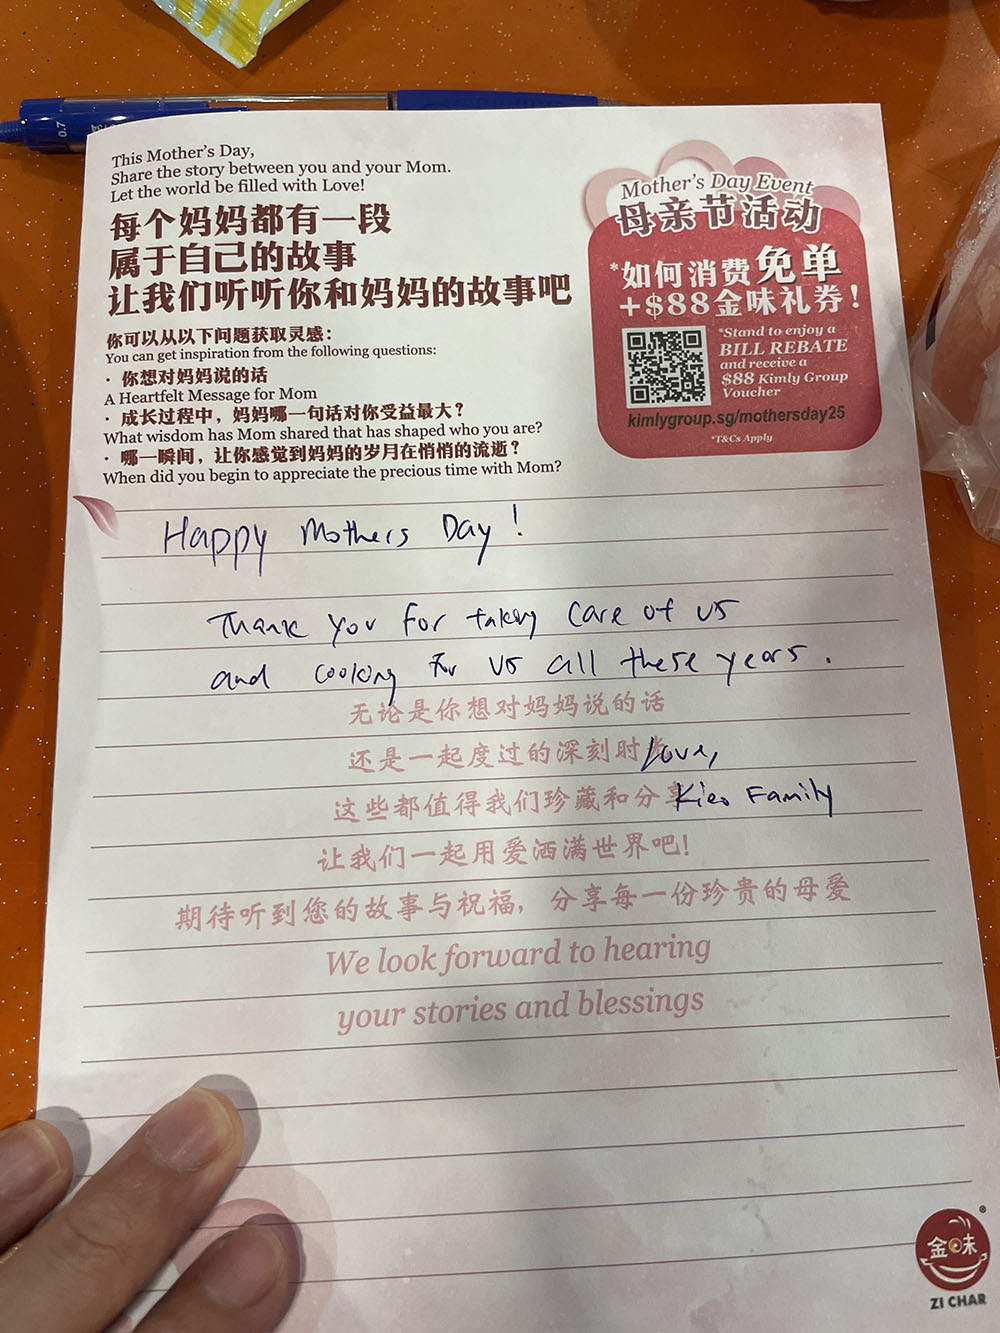 0.7
This Mother's Day,
Share the story between you and your Mom.
Let the world be filled with Love!
每个妈妈都有一段
属于自己的故事
让我们听听你和妈妈的故事吧
你可以从以下问题获取灵感：
You can get inspiration from the following questions:
· 你想对妈妈说的话
A Heartfelt Message for Mom
· 成长过程中，妈妈哪一句话对你受益最大？
What wisdom has Mom shared that has shaped who you are?
· 哪一瞬间，让你感觉到妈妈的岁月在悄悄的流逝？
When did you begin to appreciate the precious time with Mom?
Mother's Day Event
母亲节活动
*如何消费免单
+$88金味礼券！
*Stand to enjoy a
BILL REBATE
and receive a
$88 Kimly Group
Voucher
kimlygroup.sg/mothersday25
*T&Cs Apply
Happy Mothers Day!
Thank you for taking care of us
and cooking for us all these years.
无论是你想对妈妈说的话
还是一起度过的深刻时
Love,
这些都值得我们珍藏和分享
Family
让我们一起用爱洒满世界吧!
期待听到您的故事与祝福，分享每一份珍贵的母爱
We look forward to hearing
your stories and blessings
金味
®
ZI CHAR